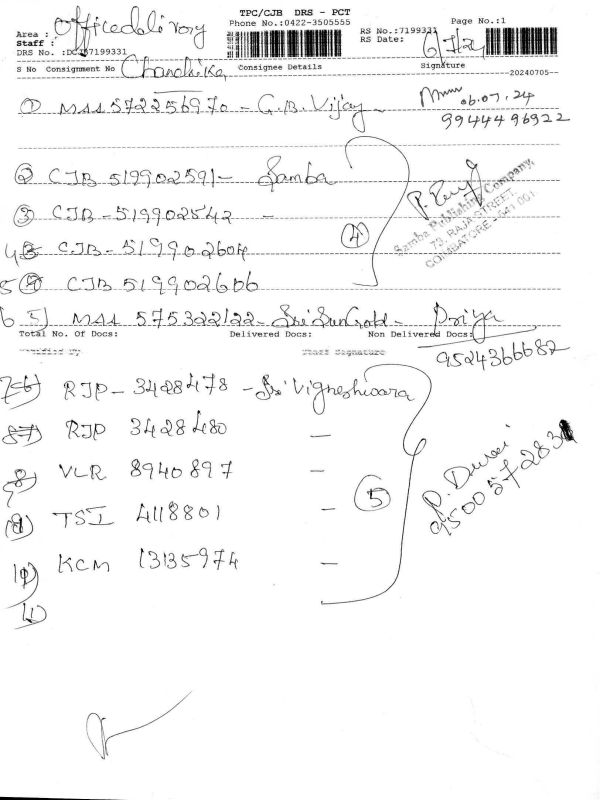 TPC/CJB DRS - PCT
Phone No.:0422-3505555
Page No.:1
Area : Officedelivery
Staff :
RS No.:7199331
RS Date: 6/7/24
DRS No. :DCJ57199331
S No Consignment No Consignee Details Signature
Chandrika
--20240705--
① MAA 572256970 - G.B. Vijay
06.07.24
9944496922
② CJB 519902591 - Samba
③ CJB - 519902542 -
4 CJB - 519902604
5 CJB 519902606
④
Samba Publishing Company,
73, RAJA STREET,
COIMBATORE - 641 001.
6 5) MAA 575322122 - Sri SunGold - Priya
Total No. Of Docs: Delivered Docs: Non Delivered Docs:
Verified By Staff Signature
9524366682
7 RJP - 3428478 - Sri Vigneshwara
8 RJP 3428480 -
VLR 8940897 -
⑤
P. Durai
TSI 4118801 -
KCM 13135974 -